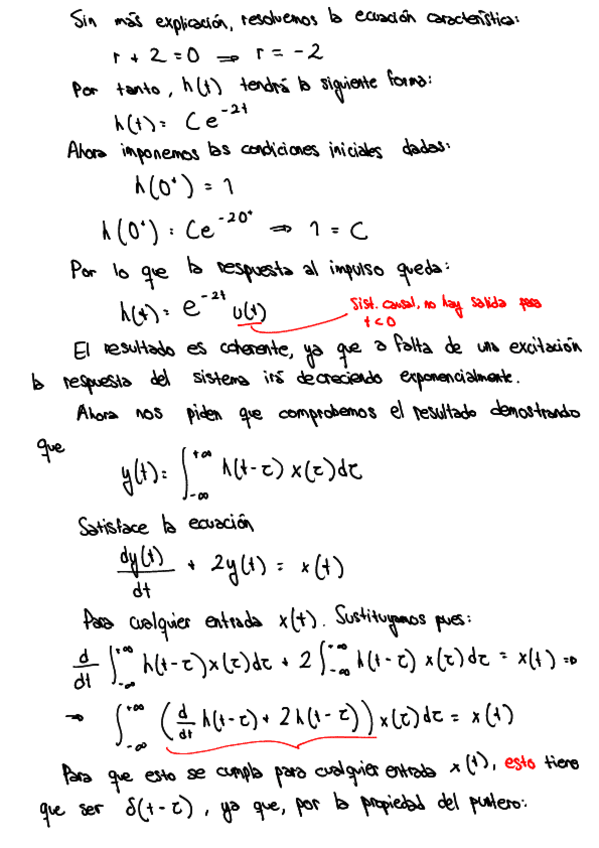 Sin más explicación, resolvemos la ecuación característica:
r + 2 = 0 ⇒ r = -2
Por tanto, h(t) tendrá la siguiente forma:
h(t) = Ce^{-2t}
Ahora imponemos las condiciones iniciales dadas:
h(0⁺) = 1
h(0⁺) = Ce^{-2·0⁺} ⇒ 1 = C
Por lo que la respuesta al impulso queda:
h(t) = e^{-2t} u(t)
Sist. causal, no hay salida para
t < 0
El resultado es coherente, ya que a falta de una excitación
la respuesta del sistema irá decreciendo exponencialmente.
Ahora nos piden que comprobemos el resultado demostrando
que
y(t) = ∫_{-∞}^{+∞} h(t-τ) x(τ)dτ
Satisface la ecuación
dy(t)/dt + 2y(t) = x(t)
Para cualquier entrada x(t). Sustituyamos pues:
d/dt ∫_{-∞}^{+∞} h(t-τ)x(τ)dτ + 2∫_{-∞}^{+∞} h(t-τ) x(τ)dτ = x(t) ⇒
⇒ ∫_{-∞}^{+∞} (d/dt h(t-τ) + 2h(t-τ)) x(τ)dτ = x(t)
Para que esto se cumpla para cualquier entrada x(t), esto tiene
que ser δ(t-τ), ya que, por la propiedad del puntero: